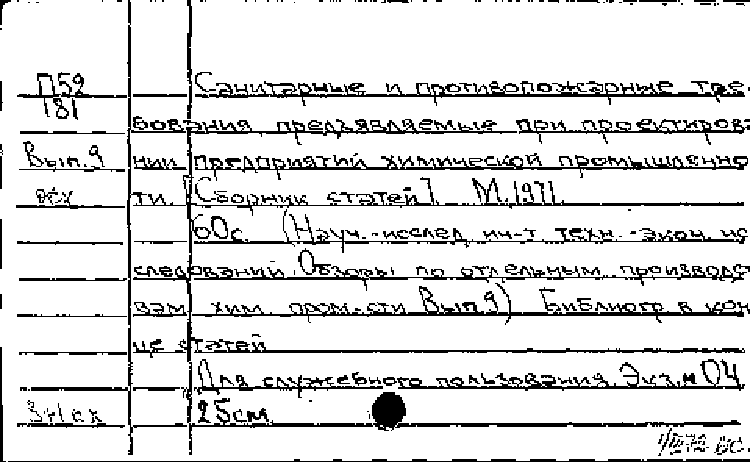 П59 Санитарные и противопожарные тре-
181
бования, предъявляемые при проектирова
Вып.9 нии предприятий химической промышленно
ти. [Сборник статей]. М., 1971.
60с. (Науч.-исслед. ин-т техн.-экон. ис
следований. Обзоры по отдельным производст
вам хим. пром-сти. Вып.9) Библиогр. в кон
це статей
Для служебного пользования. Экз.№ 04
25см.